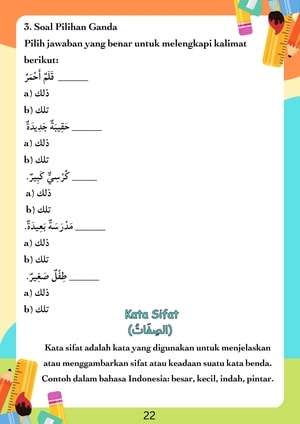 3. Soal Pilihan Ganda
Pilih jawaban yang benar untuk melengkapi kalimat
berikut:
______ قَلَمٌ أَحْمَرُ
a) ذلك
b) تلك
______ حَقِيبَةٌ جَدِيدَةٌ
a) ذلك
b) تلك
______ كُرْسِيٌّ كَبِيرٌ.
a) ذلك
b) تلك
______ مَدْرَسَةٌ بَعِيدَةٌ.
a) ذلك
b) تلك
______ طِفْلٌ صَغِيرٌ.
a) ذلك
b) تلك
Kata Sifat
(الصِفَاتُ)
Kata sifat adalah kata yang digunakan untuk menjelaskan
atau menggambarkan sifat atau keadaan suatu kata benda.
Contoh dalam bahasa Indonesia: besar, kecil, indah, pintar.
22